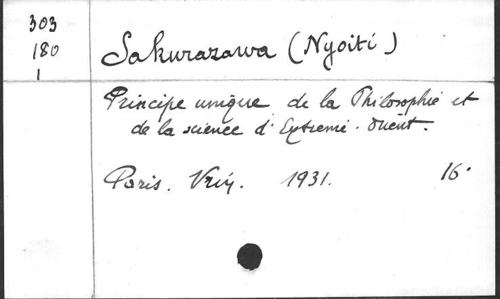 303
180
1
Sakurazawa (Nyoiti)
Principe unique de la Philosophie et
de la science d'Extreme-Orient.
Paris. Vrin. 1931. 16°